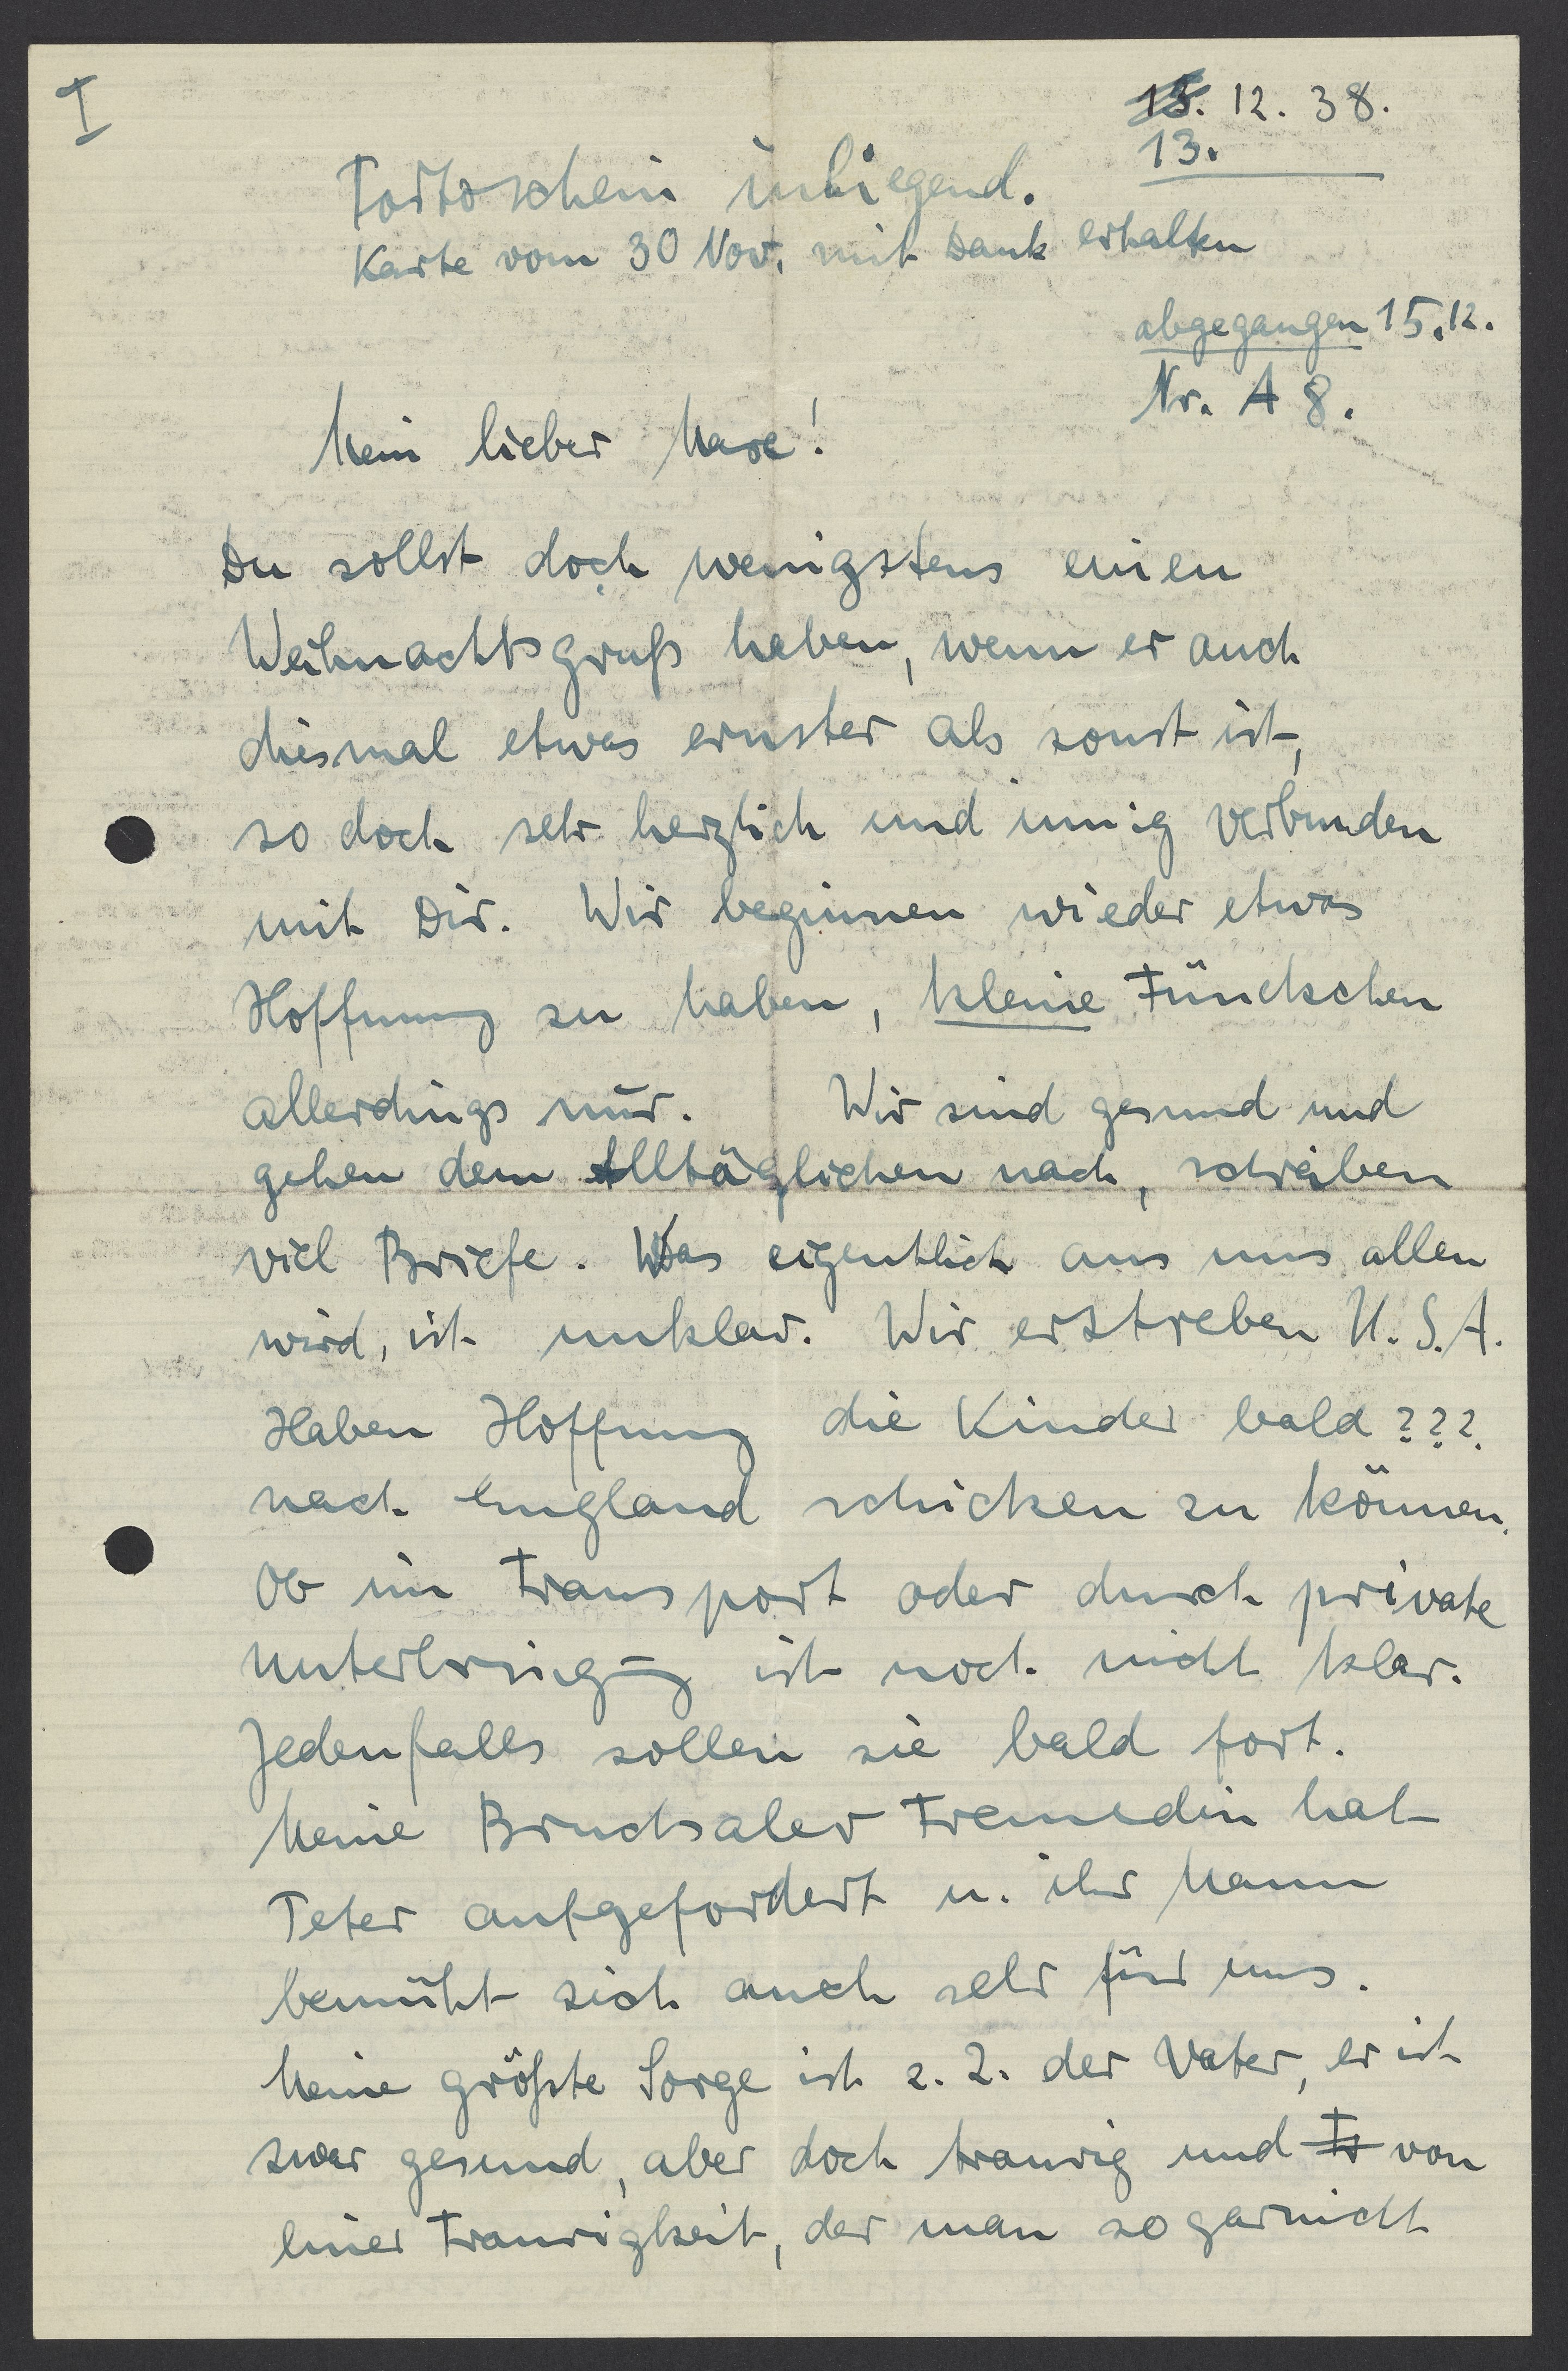 I
15. 12. 38.
13.
Portoschein inliegend.
Karte vom 30 Nov. mit Dank erhalten
abgegangen 15.12.
Nr. A 8.
Mein lieber Maxe!
Du sollst doch wenigstens einen
Weihnachtsgruß haben, wenn er auch
diesmal etwas ernster als sonst ist,
so doch sehr herzlich und innig verbunden
mit Dir. Wir beginnen wieder etwas
Hoffnung zu haben, kleine Fünckchen
allerdings nur. Wir sind gesund und
gehen dem Alltäglichen nach, schreiben
viel Briefe. Was eigentlich aus uns allen
wird, ist unklar. Wir erstreben U.S.A.
Haben Hoffnung die Kinder bald ???
nach England schicken zu können.
Ob im Transport oder durch private
Unterbringung ist noch nicht klar.
Jedenfalls sollen sie bald fort.
Meine Bruchsaler Freundin hat
Peter aufgefordert u. ihr Mann
bemüht sich auch sehr für uns.
Meine größte Sorge ist z. Z. der Vater, er ist
zwar gesund, aber doch traurig und Tr von
einer Traurigkeit, der man so garnicht